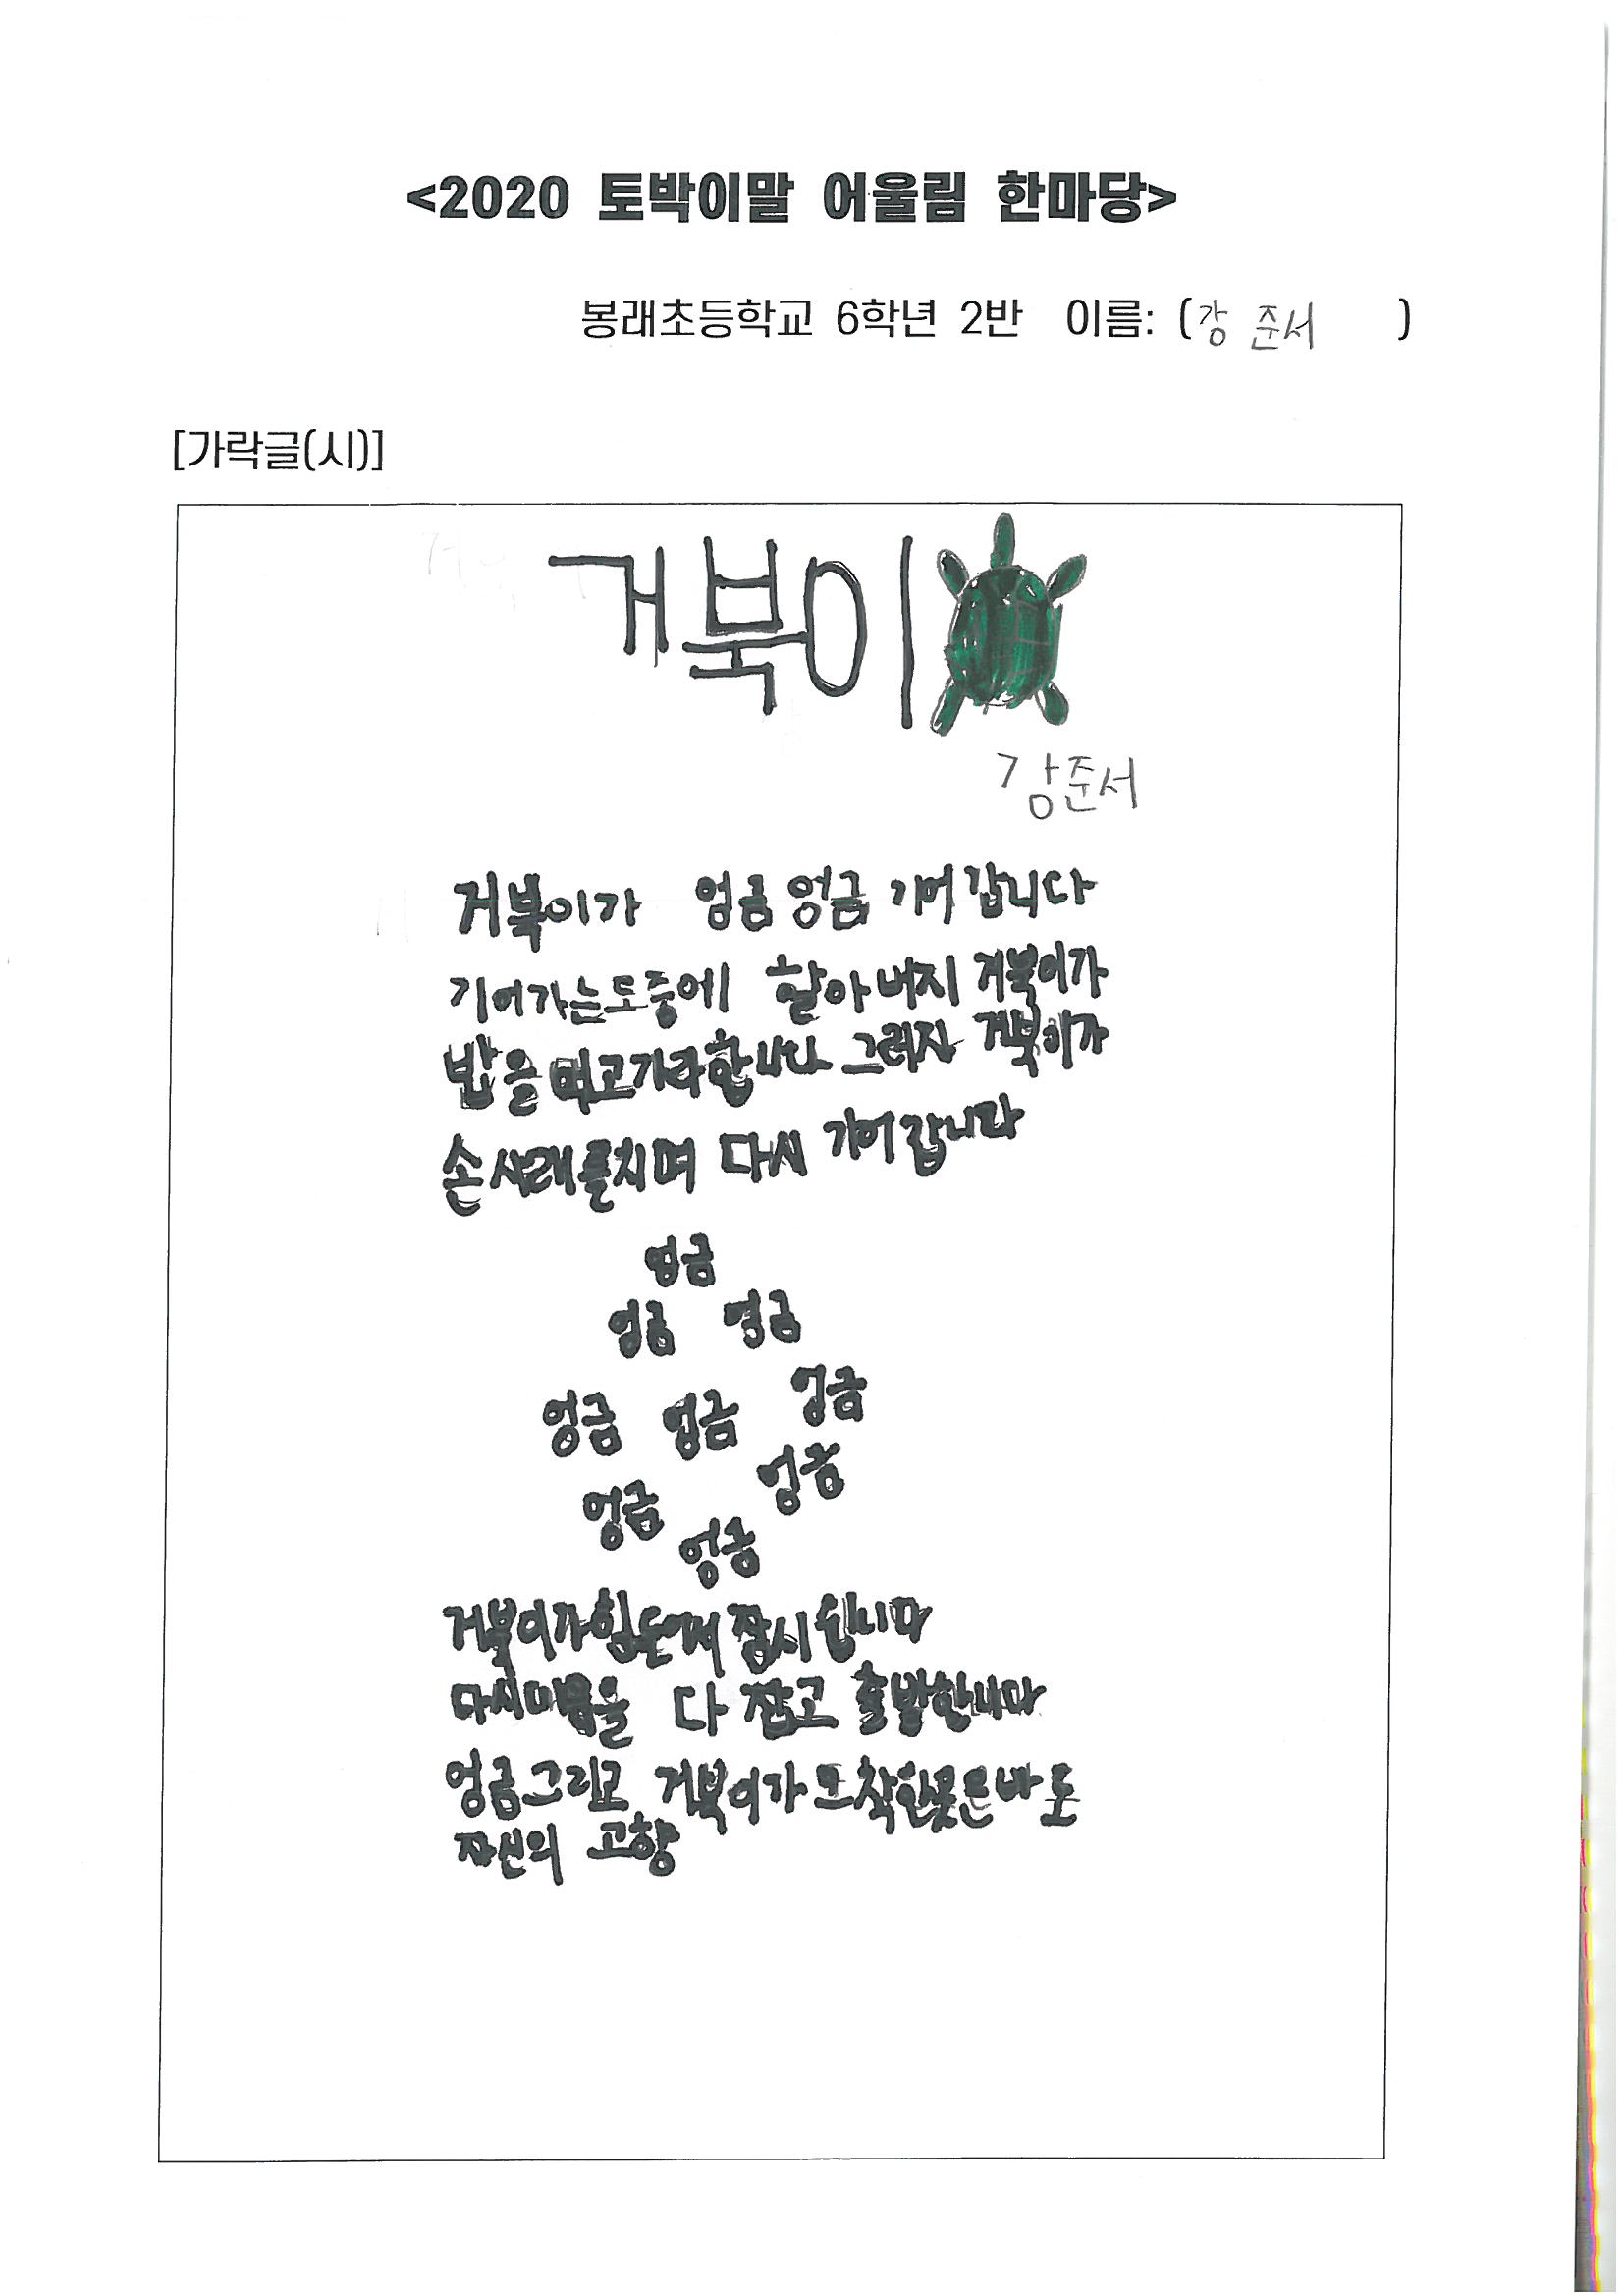 <2020 토박이말 어울림 한마당>
봉래초등학교 6학년 2반 이름: (강 준서 )
[가락글(시)]
거북이
강준서
거북이가 엉금엉금 기어갑니다
기어가는도중에 할아버지 거북이가
밥을 먹고가라합니다 그러자 거북이가
손사래를치며 다시 기어갑니다
엉금
엉금 엉금
엉금 엉금 엉금
엉금 엉금
엉금
거북이가힘든게 잠시쉽니다
다시마음을 다 잡고 출발합니다
엉금그리고 거북이가 도착한곳은바로
자신의 고향